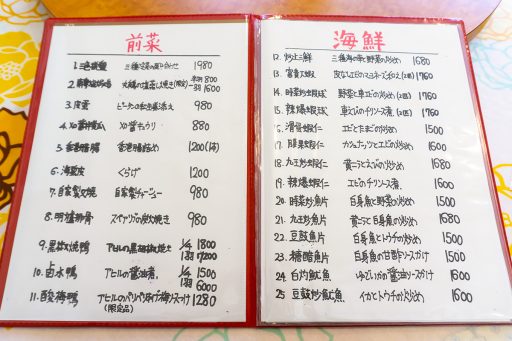 前菜
1. 三色拼盤 三種冷菜の盛り合わせ 1980
2. 半羽 800 一羽 1600
3. 皮蛋 ピータンの 添え 980
4. XO醤 XO醤キュウリ 880
5. 香港腸詰め 1200
6. 海蜇皮 くらげ 1200
7. 自家製叉焼 自家製チャーシュー 980
8. 明爐排骨 スペアリブの炭火焼き 980
9. 黒椒火焼鴨 アヒルの黒胡椒火焼き 1/4 1800
1羽 7200
10. 卤水鴨 アヒルの醤油煮 1/4 1500
1羽 6000
11. 酸梅鴨 アヒルのパリパリあげ梅ソースかけ 1280
(限定品)
海鮮
12. 炒三鮮 三種海の幸と野菜の炒め 1680
13. 富貴大蝦 皮なしエビのマヨネーズ和え(2匹) 1760
14. 時菜炒蝦球 野菜と車エビの炒め(2匹) 1760
15. 辣爆蝦球 車エビのチリソース煮(2匹) 1760
16. 滑蛋蝦仁 エビとたまごの炒め 1500
17. 腰果蝦仁 カシュナッツとエビの炒め 1600
18. 九王炒蝦仁 黄ニラとえびの炒め 1680
19. 辣爆蝦仁 エビのチリソース煮 1600
20. 時菜炒魚片 白身魚と野菜の炒め 1500
21. 九王炒魚片 黄ニラと白身魚の炒め 1500
22. 豆鼓魚片 白身魚とトウチの炒め 1500
23. 糖醋魚片 白身魚の甘酢ソースかけ 1500
24. 白灼魷魚 ゆでいかの醤油ソースかけ 1600
25. 豆鼓炒魷魚 イカとトウチの炒め 1600